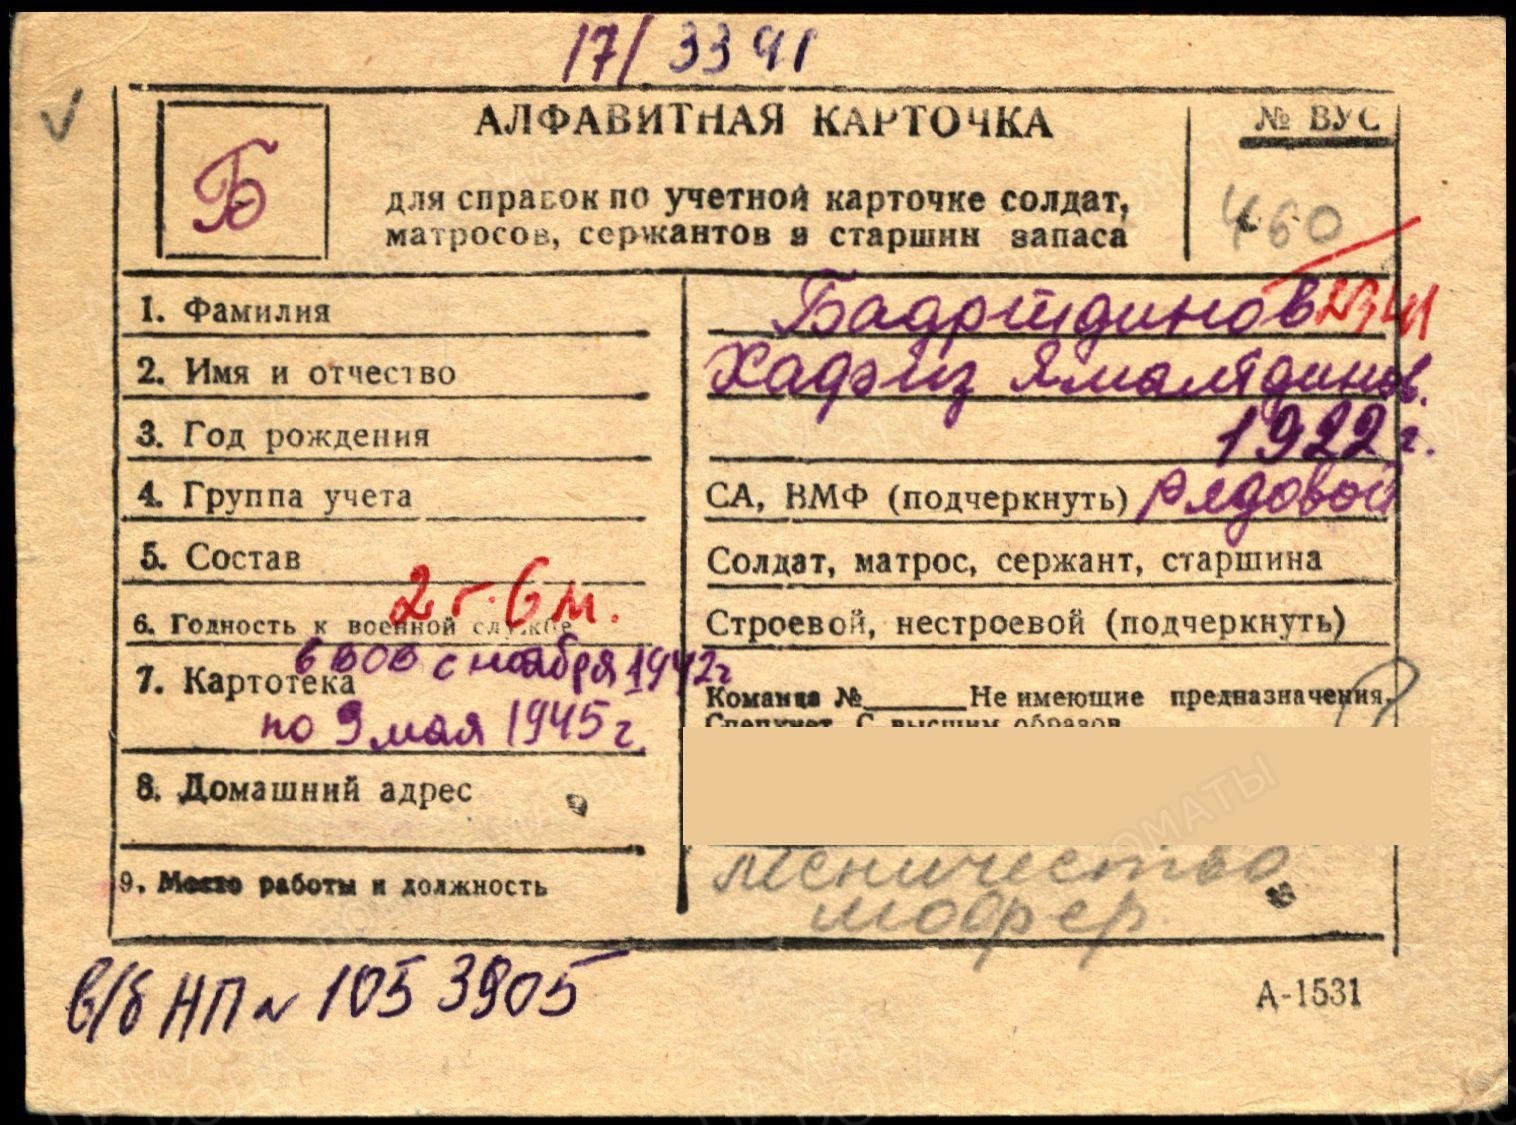 17/3391
Б
АЛФАВИТНАЯ КАРТОЧКА
№ ВУС
для справок по учетной карточке солдат,
матросов, сержантов и старшин запаса
460
1. Фамилия
Бадртдинов
2. Имя и отчество
Хафиз Ямалтдинов.
3. Год рождения
1922 г.
4. Группа учета
СА, ВМФ (подчеркнуть) рядовой
5. Состав
Солдат, матрос, сержант, старшина
2 г. 6 м.
6. Годность к военной службе
Строевой, нестроевой (подчеркнуть)
в ВОВ с ноября 1942 г
7. Картотека
Команда №______ Не имеющие предназначения,
по 9 мая 1945 г.
Спецучет С высшим образов.
8. Домашний адрес
9. Место работы и должность
лесничество
шофер
в/б НП № 1053905
А-1531